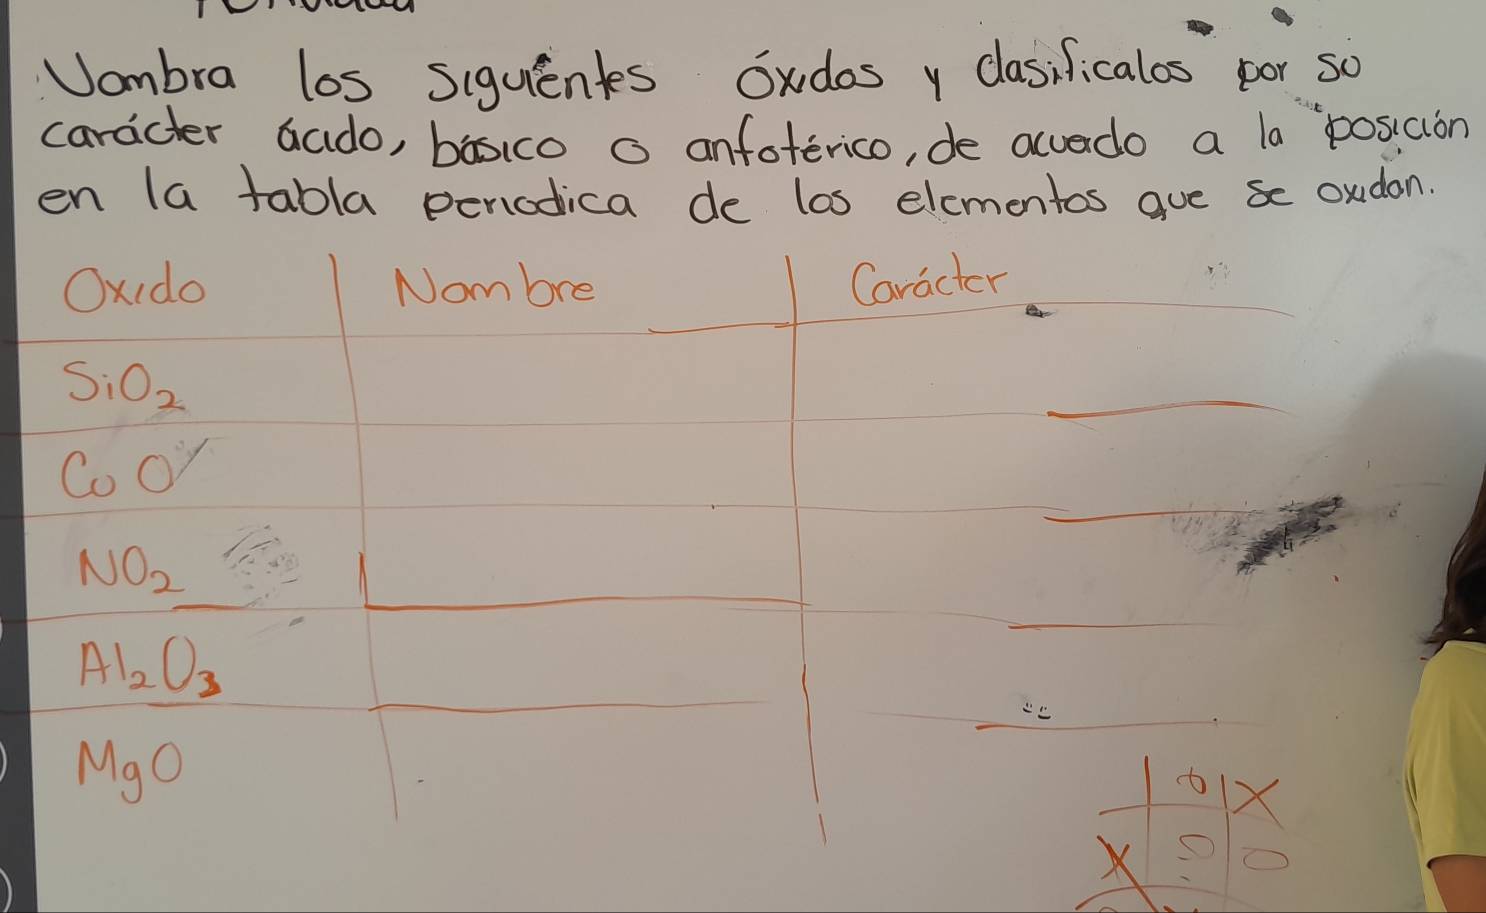 Nombra los siguientes óxidos y clasificalos por su
carácter ácido, básico o anfotérico, de acuerdo a la posición
en la tabla periodica de los elementos que se oxidan.
Oxido Nombre Carácter
SiO₂
CoO
NO₂
Al₂O₃
MgO
O X
X O O